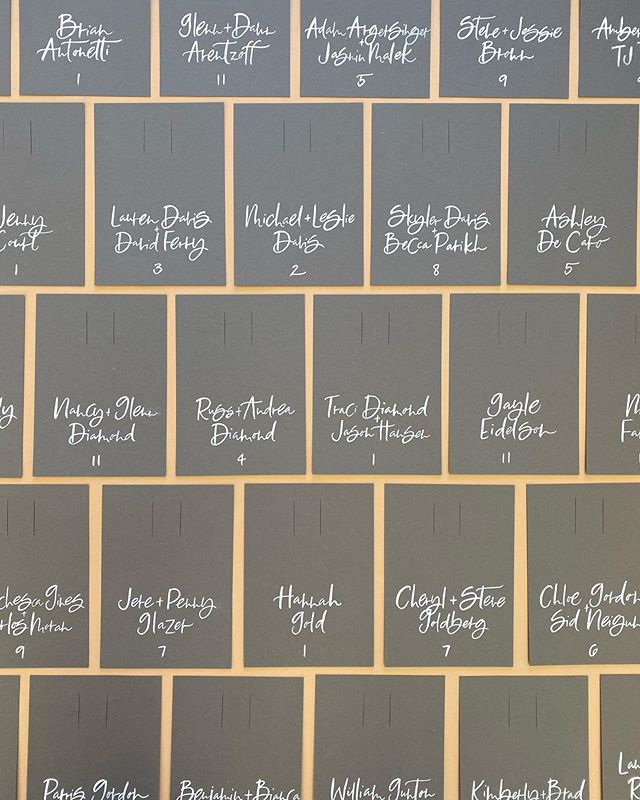 Brian
Antonetti
1
Glenn + Dawn
Arentzoff
11
Adam Angersinger
+
Jasmin Malek
5
Steve + Jessie
Brown
9
Amber
TJ
Jenny
Court
1
Lauren Davis
+
David Ferry
3
Michael + Leslie
Davis
2
Skyler Davis
+
Becca Parikh
8
Ashley
De Caro
5
Nancy + Glenn
Diamond
11
Russ + Andrea
Diamond
4
Traci Diamond
+
Jason Hansen
1
Gayle
Eidelson
11
9
Jere + Penny
Glazer
7
Hannah
Gold
1
Cheryl + Steve
Goldberg
7
Chloe Gordon
+
Sid
6
Parris Gordon
Benjamin + Bianca
William Gunton
Kimberly + Brad